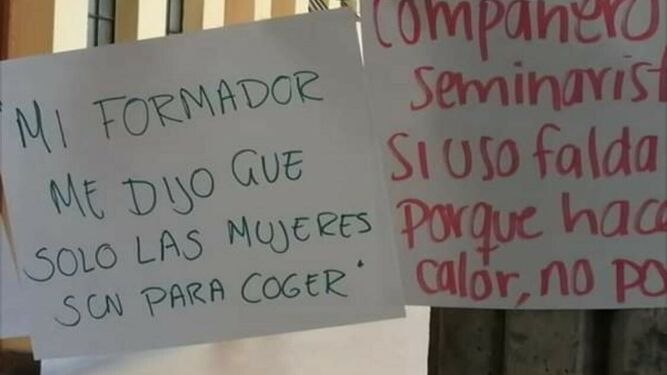 "MI FORMADOR
ME DIJO QUE
SOLO LAS MUJERES
SON PARA COGER"
COMPAÑERO
seminarist
SI USO falda
Porque hace
calor, no po